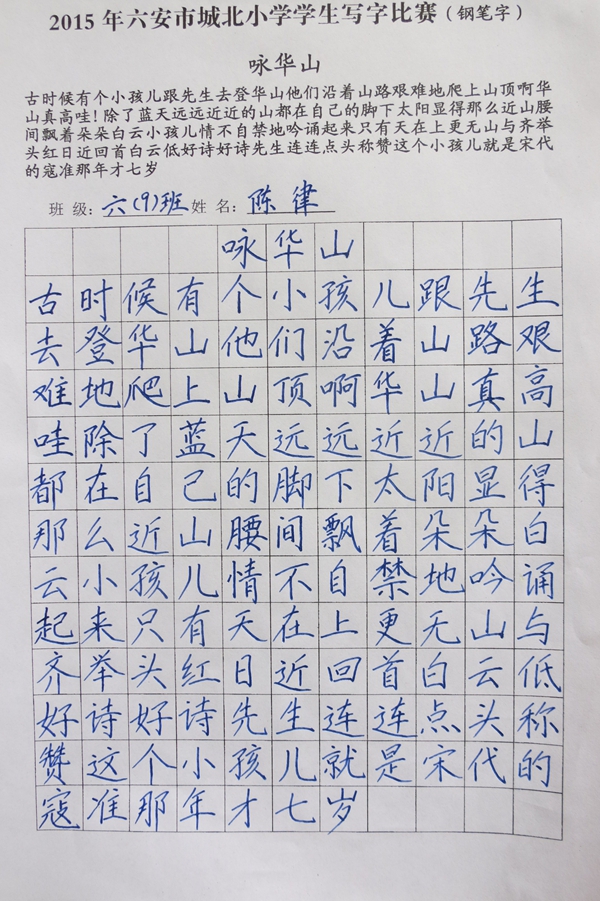 2015年六安市城北小学学生写字比赛(钢笔字)
咏华山
古时候有个小孩儿跟先生去登华山他们沿着山路艰难地爬上山顶啊华
山真高哇!除了蓝天远远近近的山都在自己的脚下太阳显得那么近山腰
间飘着朵朵白云小孩儿情不自禁地吟诵起来只有天在上更无山与齐举
头红日近回首白云低好诗好诗先生连连点头称赞这个小孩儿就是宋代
的寇准那年才七岁
班级:六(9)班姓名:陈律
咏华山
古时候有个小孩儿跟先生
去登华山他们沿着山路艰
难地爬上山顶啊华山真高
哇除了蓝天远远近近的山
都在自己的脚下太阳显得
那么近山腰间飘着朵朵白
云小孩儿情不自禁地吟诵
起来只有天在上更无山与
齐举头红日近回首白云低
好诗好诗先生连连点头称
赞这个小孩儿就是宋代的
寇准那年才七岁